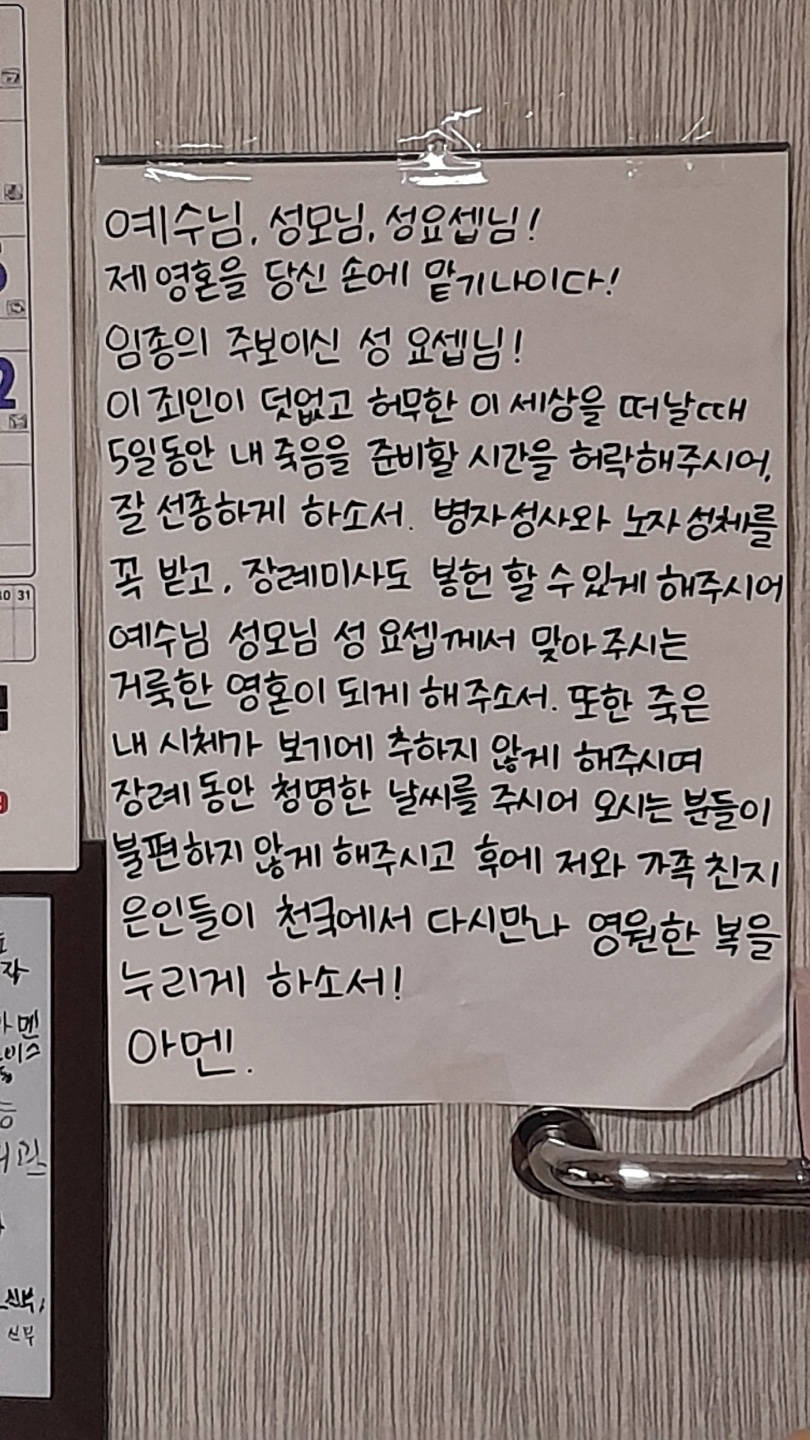 예수님, 성모님, 성요셉님!
제 영혼을 당신 손에 맡기나이다!
임종의 주보이신 성 요셉님!
이 죄인이 덧없고 허무한 이 세상을 떠날때
5일동안 내 죽음을 준비할 시간을 허락해주시어,
잘 선종하게 하소서. 병자성사와 노자성체를
꼭 받고, 장례미사도 봉헌 할 수 있게 해주시어
예수님 성모님 성 요셉께서 맞아주시는
거룩한 영혼이 되게 해주소서. 또한 죽은
내 시체가 보기에 추하지 않게 해주시며
장례동안 청명한 날씨를 주시어 오시는 분들이
불편하지 않게 해주시고 후에 저와 가족 친지
은인들이 천국에서 다시만나 영원한 복을
누리게 하소서!
아멘.
31
2
신부